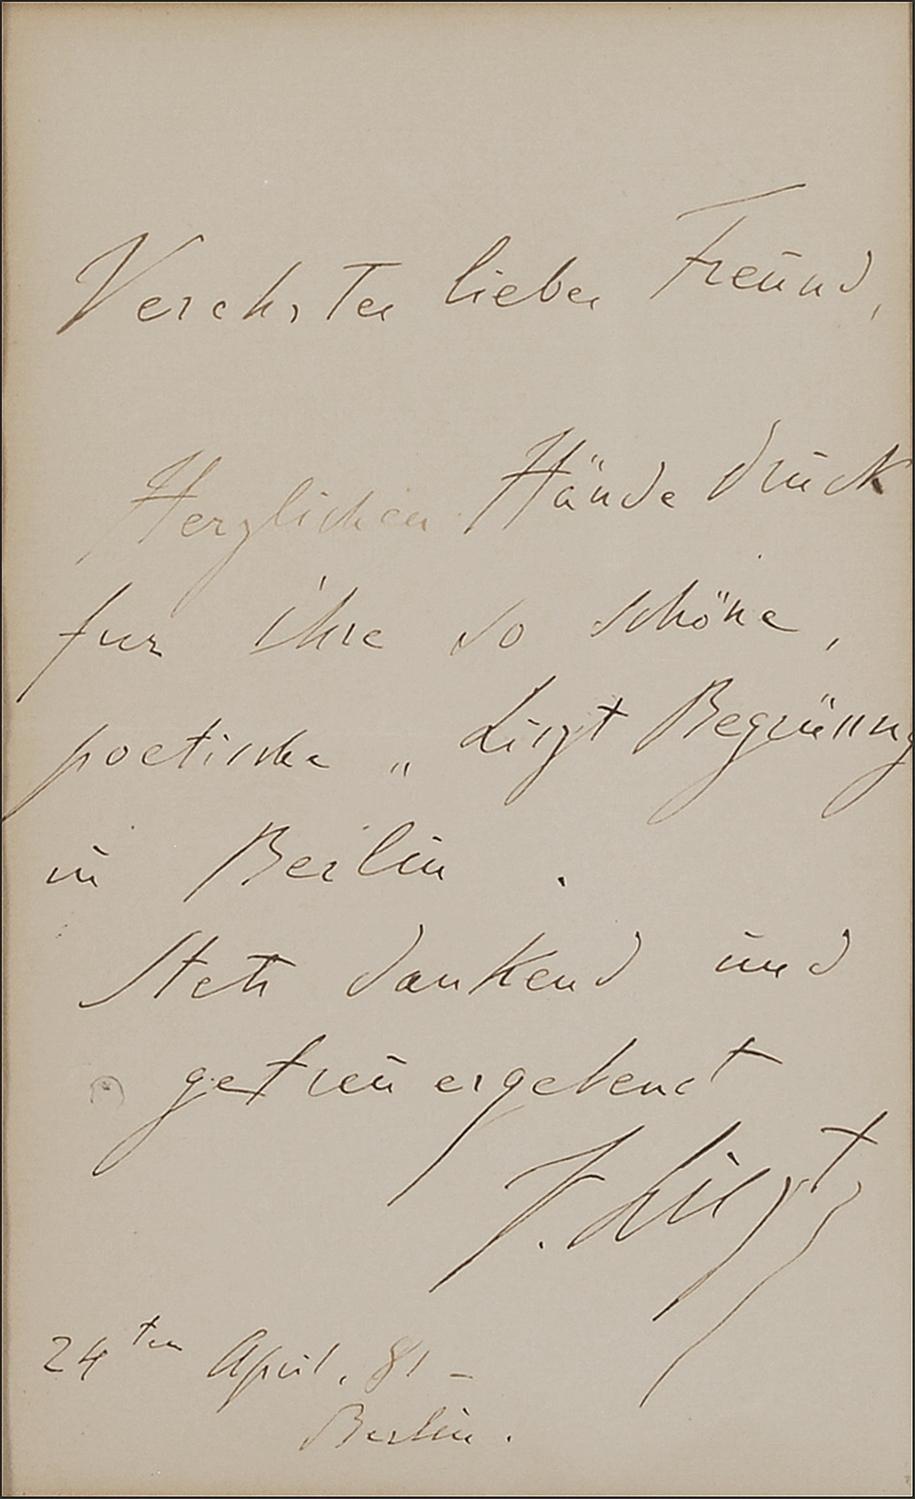 Verehrter lieber Freund,
Herzlichen Hände druck
fur ihre so schöne,
poetische „ Liszt Begrüssung
in Berlin .
Stets dankend und
getreu ergebenst
F. Liszt
24ten April, 81 –
Berlin.